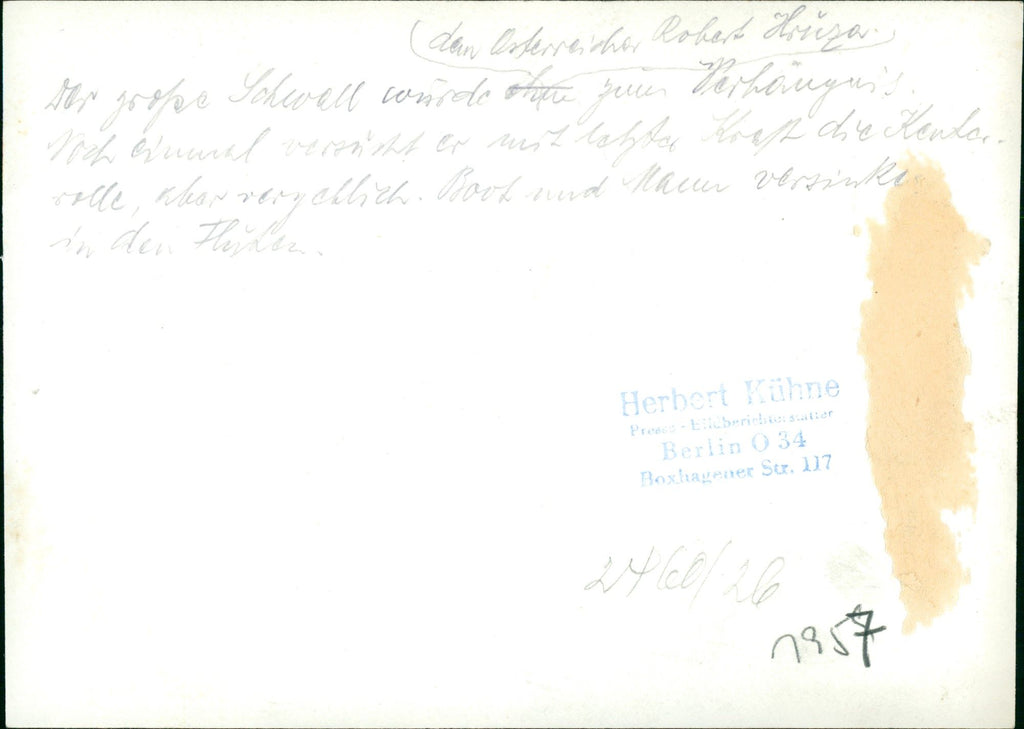 (dem Österreicher Robert Hruza.)
Der große Schwall wurde zum Verhängnis.
Noch einmal versucht er mit letzter Kraft die Kenter-
rolle, aber vergeblich. Boot und Mann versinken
in den Fluten.
Herbert Kühne
Presse-Bildberichterstatter
Berlin O 34
Boxhagener Str. 117
2460/26
1957